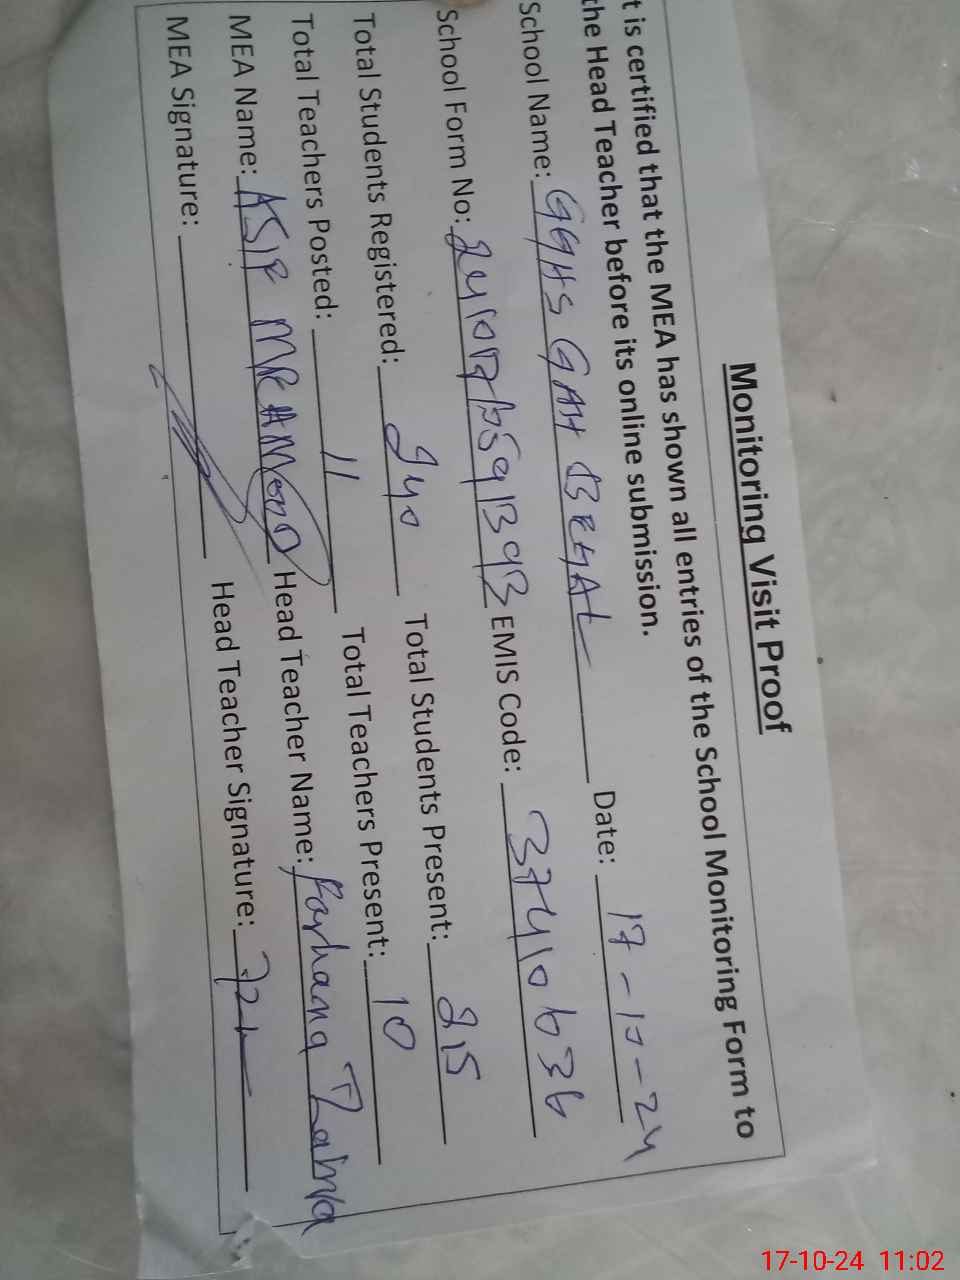 Monitoring Visit Proof
t is certified that the MEA has shown all entries of the School Monitoring Form to
the Head Teacher before its online submission.
School Name: GGHS GAH BEHAL Date: 17-10-24
School Form No: EMIS Code: 37410636
Total Students Registered: 240 Total Students Present: 215
Total Teachers Posted: 11 Total Teachers Present: 10
MEA Name: ASIF MEHMOOD Head Teacher Name: Farhana Zaina
MEA Signature: Head Teacher Signature:
17-10-24 11:02